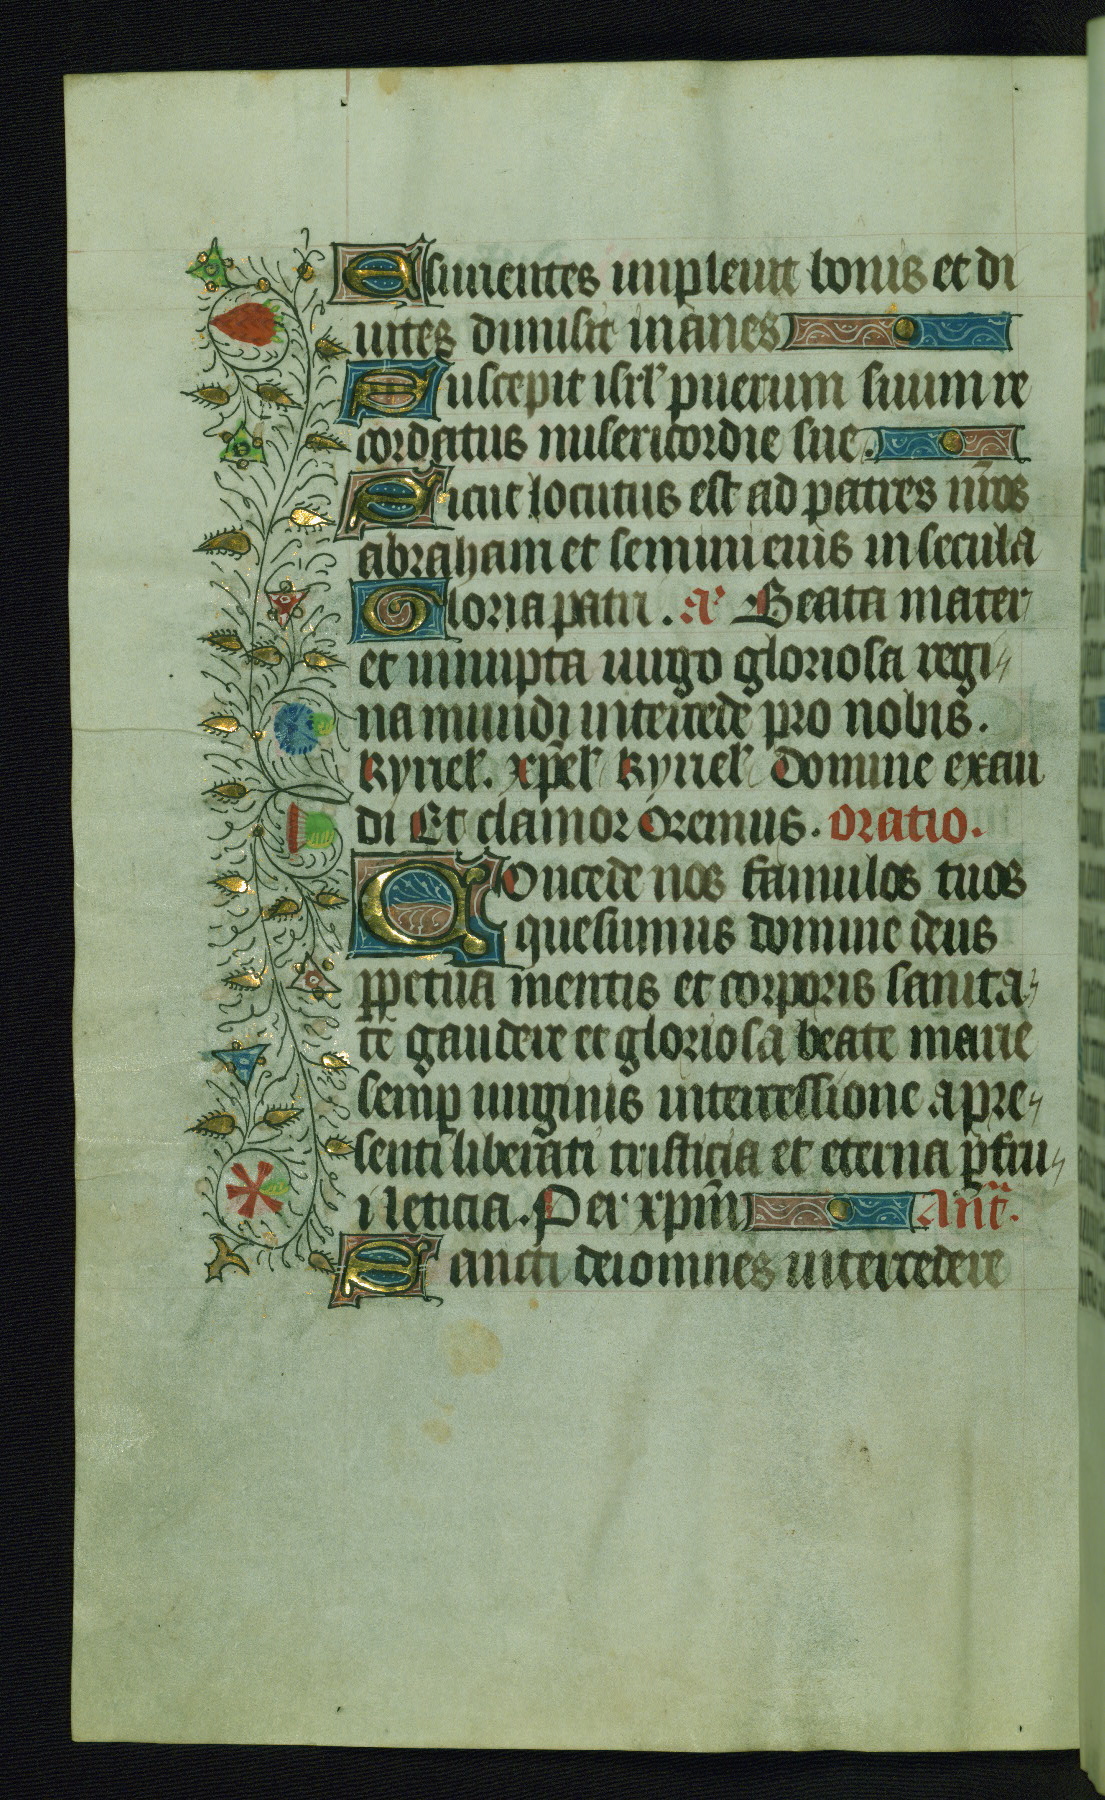 Esurientes impleuit bonis et di
uites dimisit inanes
Suscepit isrl' puerum suum re
cordatus misericordie sue.
Sicut locutus est ad patres nr̄os
abraham et semini eius in secula
Gloria patri. A' Beata mater
et innupta uirgo gloriosa regi
na mundi intercede pro nobis.
kyriel'. xp̄el' kyriel' Domine exau
di Et clamor Oremus. Oratio.
Concede nos famulos tuos
quesumus domine deus
ꝑpetua mentis et corporis sanita
te gaudere et gloriosa beate marie
semꝑ uirginis intercessione a pre
senti liberari tristicia et eterna ꝑfru
i leticia. Per xp̄m Ant̄.
Sancti dei omnes intercedere